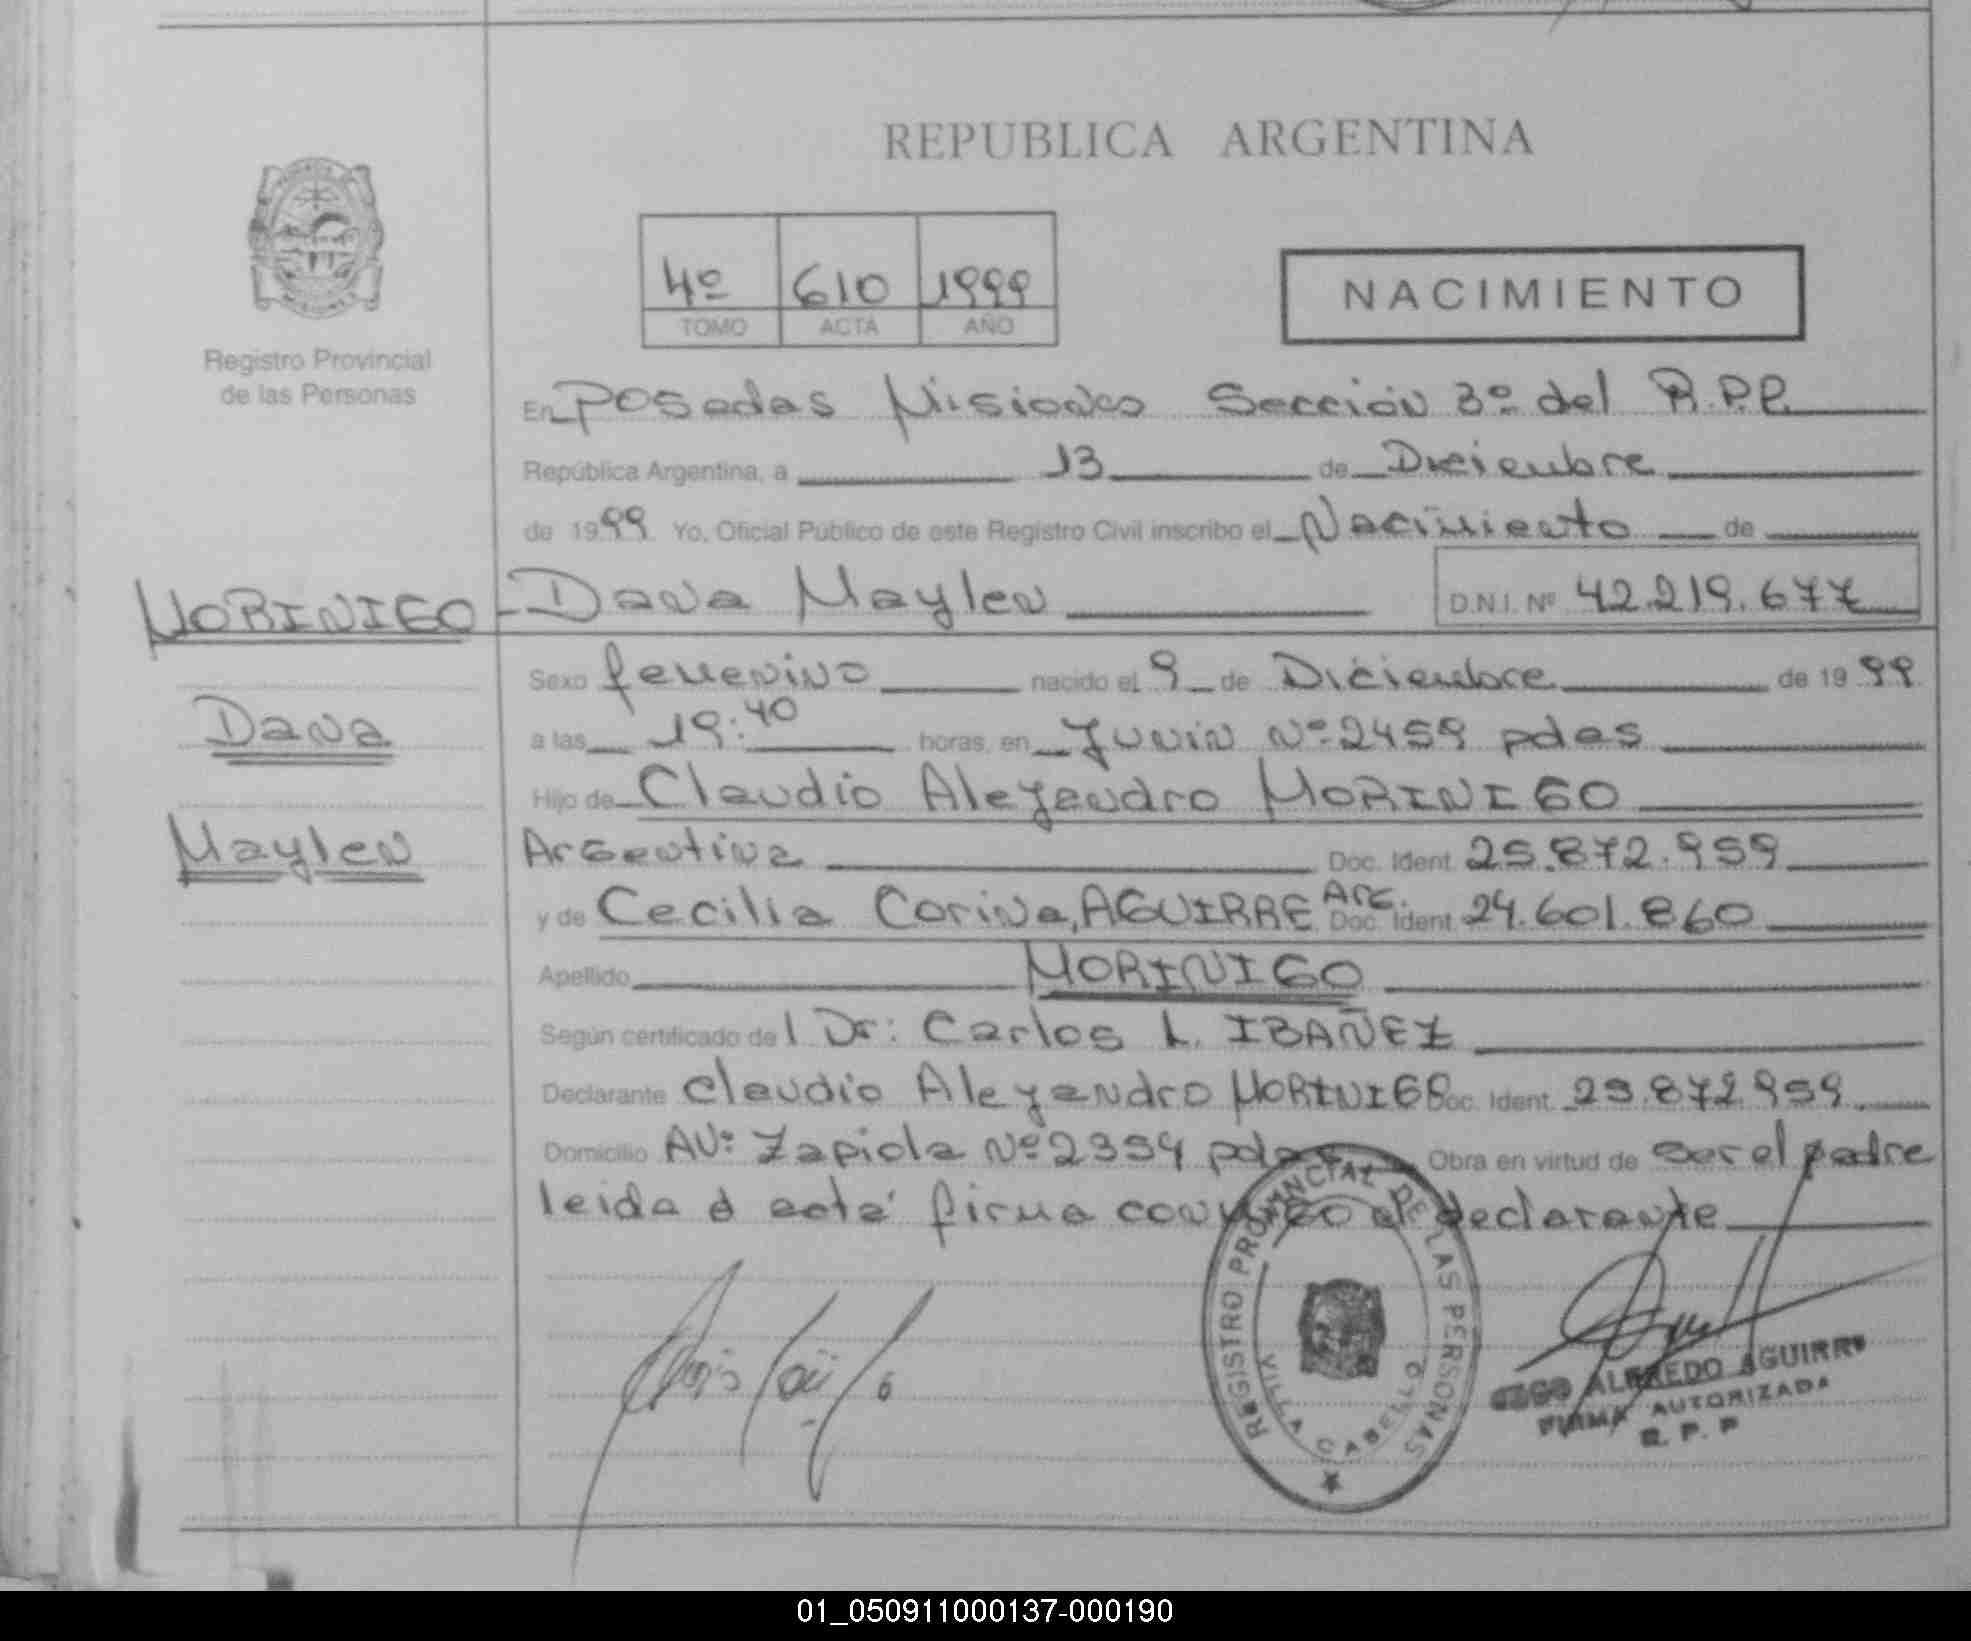 REPUBLICA ARGENTINA
4º 610 1999
TOMO ACTA AÑO
NACIMIENTO
Registro Provincial
de las Personas
En Posadas Misiones Sección 3º del R.P.P.
República Argentina, a 13 de Diciembre
de 1999 Yo, Oficial Público de este Registro Civil inscribo el Nacimiento de
MORINIGO Dana Maylen D.N.I. Nº 42.219.677
Sexo femenino nacido el 9 de Diciembre de 1999
Dana
a las 19:40 horas, en Junin Nº 2459 pdas
Hijo de Claudio Alejandro MORINIGO
Maylen
Argentina Doc. Ident. 25.872.959
y de Cecilia Corina, AGUIRRE Arg. Doc. Ident. 24.601.860
Apellido MORINIGO
Según certificado del Dr: Carlos L. IBAÑEZ
Declarante Claudio Alejandro MORINIGO Doc. Ident. 25.872.959
Domicilio AV: Zapiola Nº 2354 pdas Obra en virtud de ser el padre
leida é acta firma conmigo el declarante
REGISTRO PROVINCIAL DE LAS PERSONAS
VILLA CABELLO
ALFREDO AGUIRRE
FIRMA AUTORIZADA
R. P. P
01_050911000137-000190